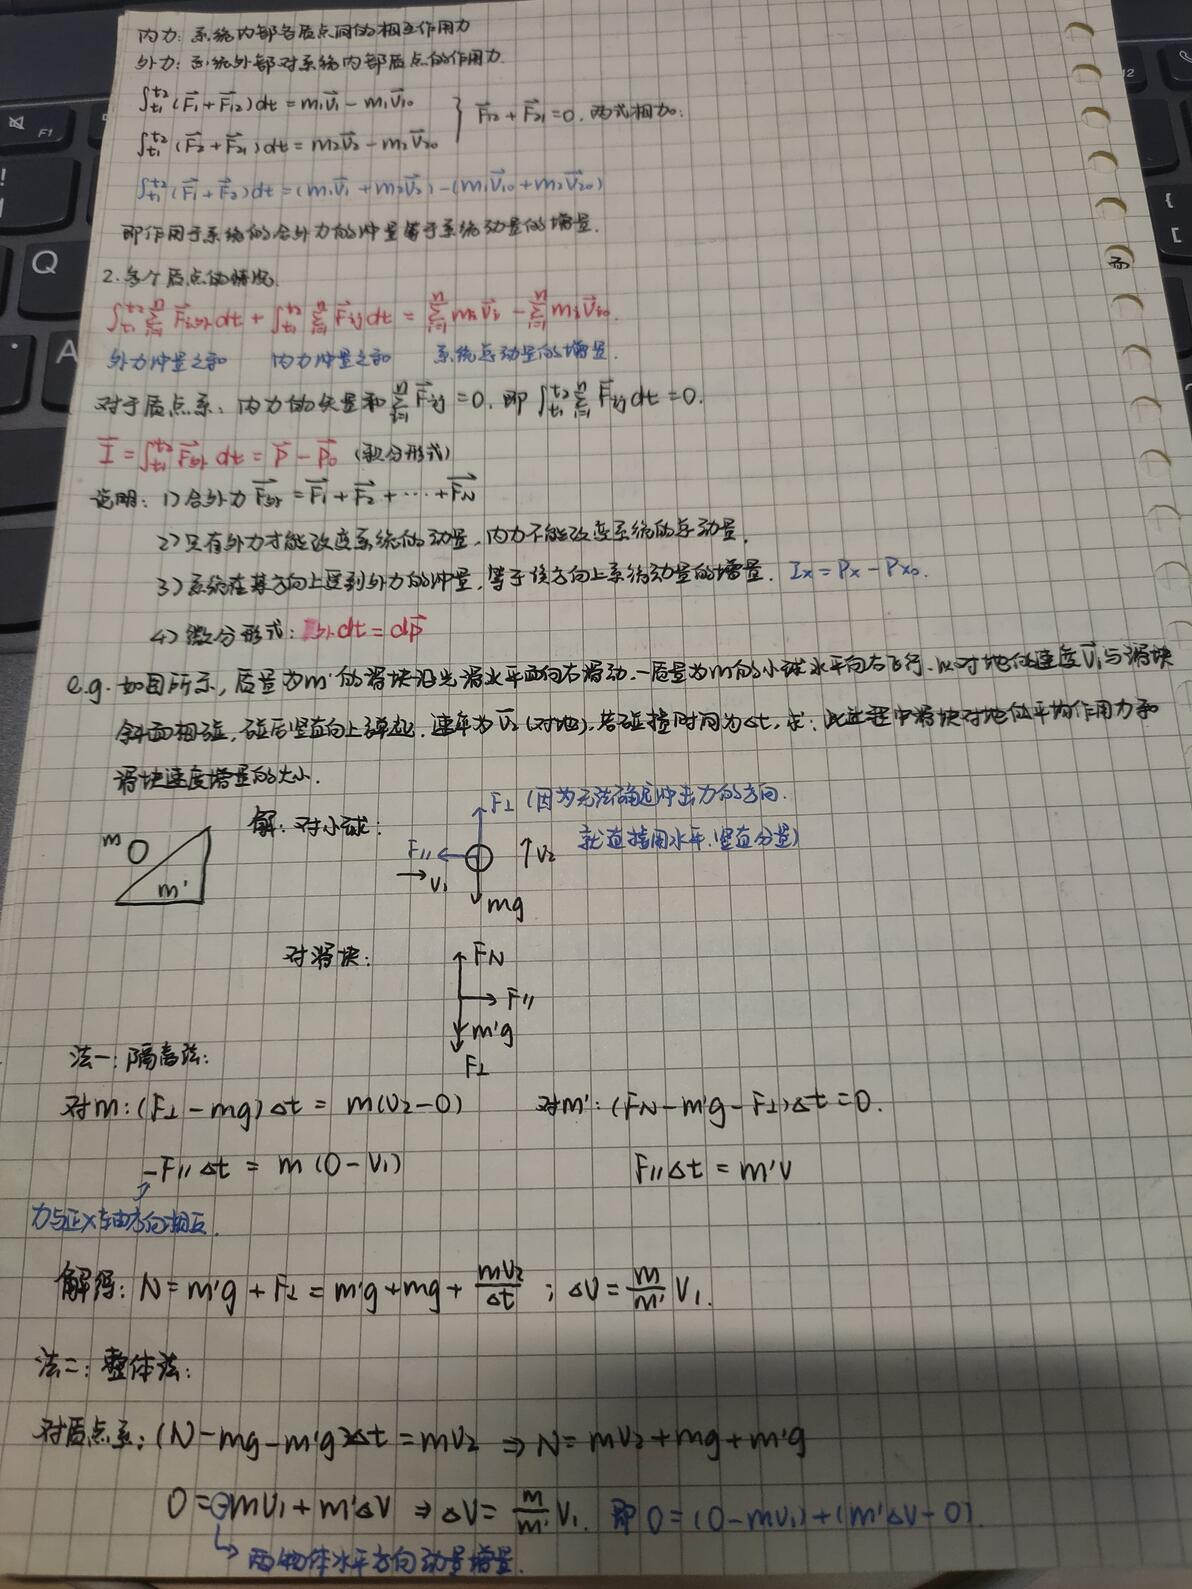 内力：系统内部各质点间的相互作用力
外力：系统外部对系统内部质点的作用力.
∫_{t1}^{t2}(F⃗1+F⃗12)dt=m1v⃗1-m1v⃗10
∫_{t1}^{t2}(F⃗2+F⃗21)dt=m2v⃗2-m2v⃗20
} F⃗12+F⃗21=0. 两式相加:
∫_{t1}^{t2}(F⃗1+F⃗2)dt=(m1v⃗1+m2v⃗2)-(m1v⃗10+m2v⃗20)
即作用于系统的合外力的冲量等于系统动量的增量.
2.多个质点的情况.
∫_{t1}^{t2}∑_{i=1}^{n}F⃗i外dt+∫_{t1}^{t2}∑_{i=1}^{n}F⃗ijdt=∑_{i=1}^{n}miv⃗i-∑_{i=1}^{n}miv⃗i0.
外力冲量之和 内力冲量之和 系统总动量的增量.
对于质点系：内力的矢量和∑_{i=1}^{n}F⃗ij=0. 即∫_{t1}^{t2}∑_{i=1}^{n}F⃗ijdt=0.
I⃗=∫_{t1}^{t2}F⃗外dt=P⃗-P⃗0 (积分形式)
说明：1)合外力F⃗外=F⃗1+F⃗2+…+F⃗N
2)只有外力才能改变系统的动量，内力不能改变系统的总动量.
3)系统在某方向上受到外力的冲量，等于该方向上系统动量的增量. Ix=Px-Px0.
4)微分形式: 外dt=dP⃗
e.g. 如图所示，质量为m'的滑块沿光滑水平面向右滑动.一质量为m的小球水平向右飞行.以对地的速度v⃗1与滑块
斜面相碰，碰后竖直向上弹起，速率为v⃗2(对地).若碰撞时间为Δt，求：此过程中滑块对地的平均作用力和
滑块速度增量的大小.
m
m'
解：对小球：
F⊥ (因为无法确定冲击力的方向.
就直接用水平.竖直分量)
F∥
v1
↑v2
mg
对滑块：
FN
F∥
m'g
F⊥
法一：隔离法：
对m:(F⊥-mg)Δt=m(v2-0) 对m':(FN-m'g-F⊥)Δt=0.
-F∥Δt=m(0-v1) F∥Δt=m'v
力与正x轴方向相反.
解得：N=m'g+F⊥=m'g+mg+mv2/Δt；Δv=m/m' v1.
法二：整体法：
对质点系：(N-mg-m'g)Δt=mv2⇒N=mv2+mg+m'g
0=-mv1+m'Δv⇒Δv=m/m' v1. 即0=(0-mv1)+(m'Δv-0).
→两物体水平方向动量增量.